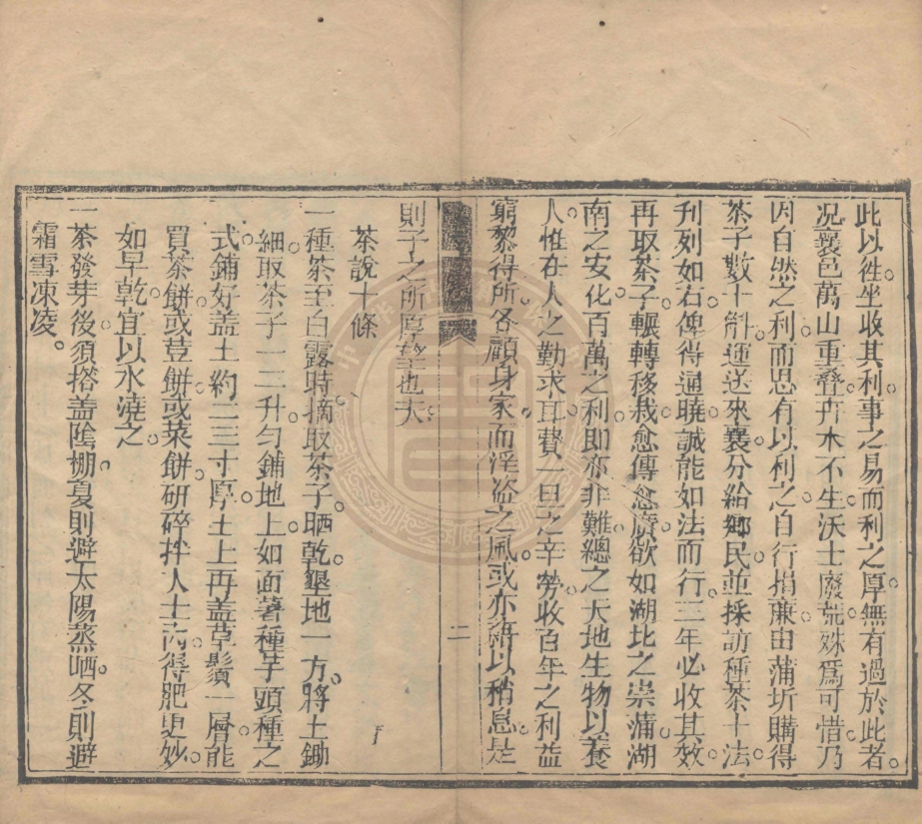 此以徃坐收其利事之易而利之厚無有過於此者
况襄邑萬山重疊卉木不生沃土廢荒殊爲可惜乃
因自然之利而思有以利之自行捐亷由蒲圻購得
茶子數十斛運送來襄分給鄉民並採訪種茶十法
刋列如右俾得通曉誠能如法而行三年必收其效
再取茶子輾轉移栽愈傳愈廣欲如湖北之崇蒲湖
南之安化百萬之利即亦非難總之天地生物以養
人惟在人之勤求耳費一日之辛勞收百年之利益
窮黎得所各顧身家而淫盗之風或亦藉以稍息是
二
則予之所厚望也夫
茶說十條
一種茶至白露時摘取茶子晒乾墾地一方將土鋤
細取茶子一二升勻鋪地上如面著種芋頭種之
式鋪好盖土約二三寸厚土上再盖草鬚一層能
買茶餅或荳餅或菜餅研碎拌人土內得肥更妙
如旱乾宜以水澆之
一茶發芽後須搭盖陰棚夏則避太陽蒸晒冬則避
霜雪凍凌